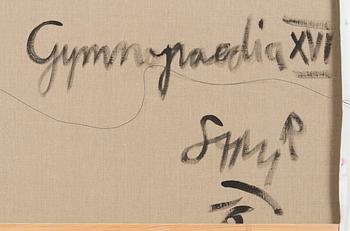 Gymnopaedia XVI